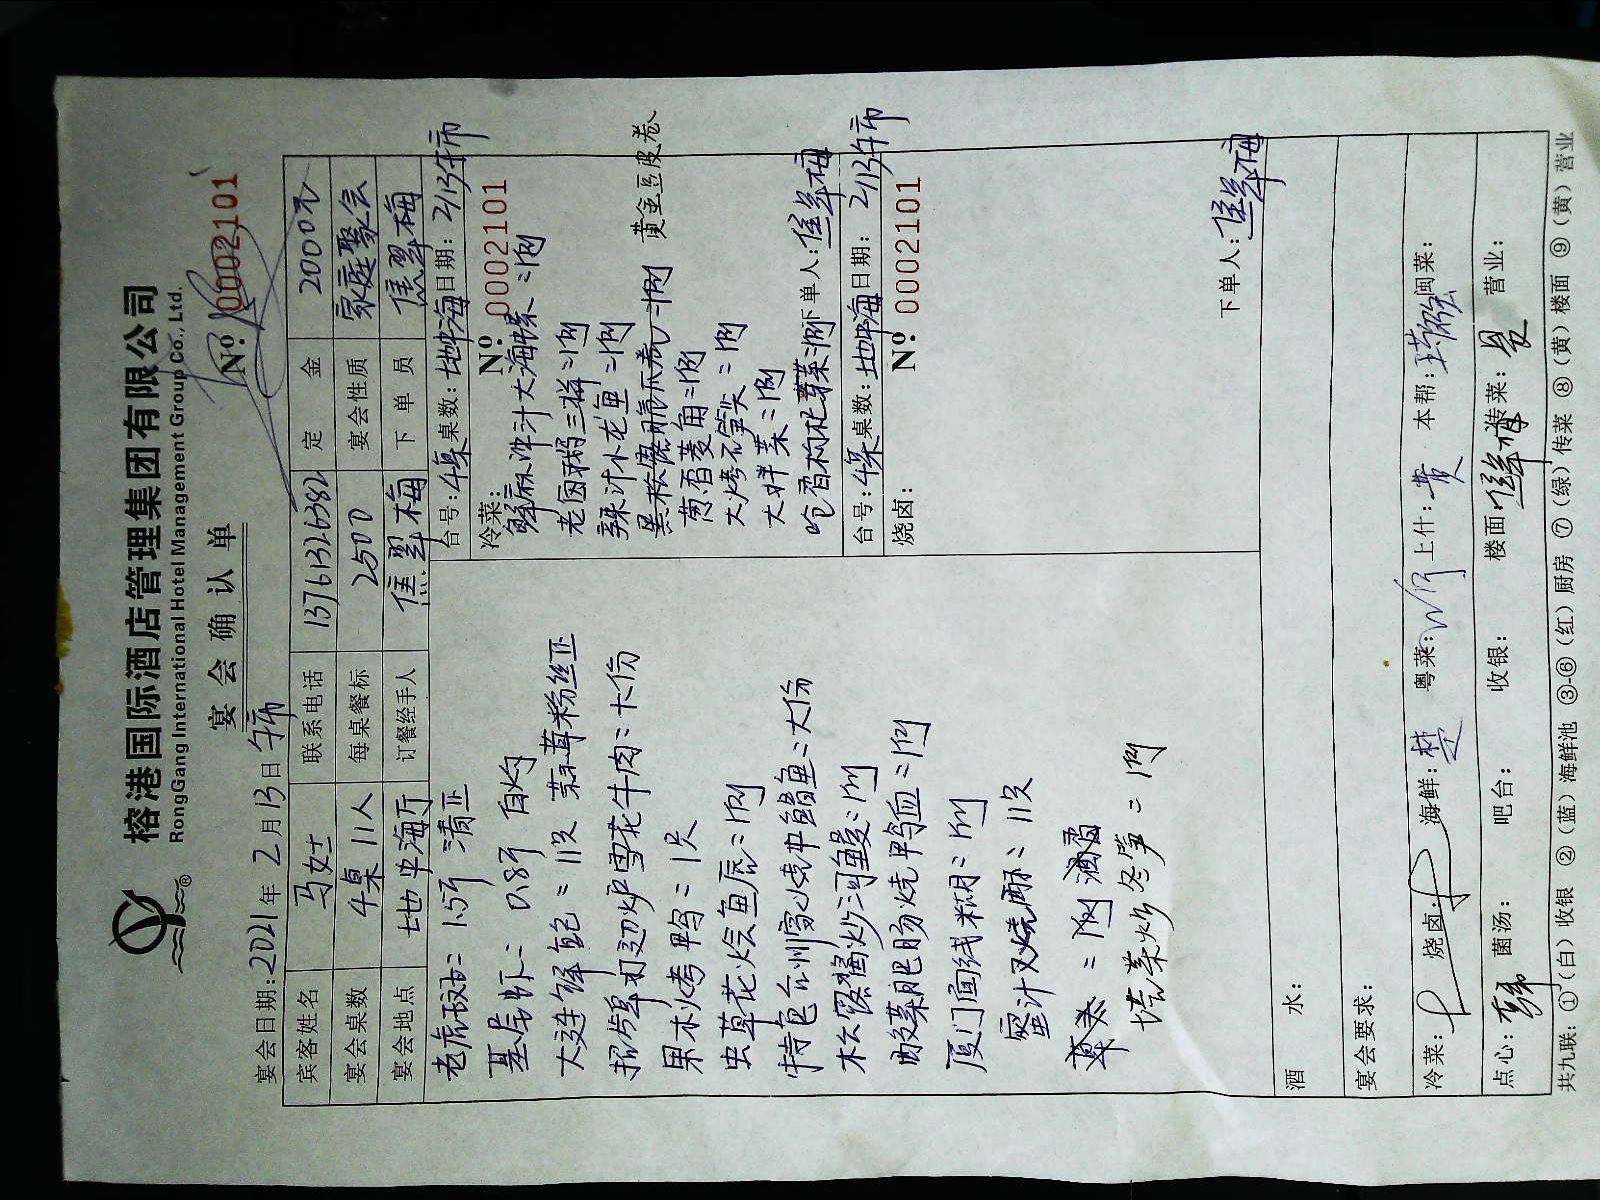 榕港国际酒店管理集团有限公司
RongGang International Hotel Management Group Co., Ltd.
宴会确认单
№ 0002101
宴会日期: 2021年 2月13日 午市
宾客姓名 马女士 联系电话 13761326382 定金 2000元
宴会桌数 4桌 11人 每桌餐标 2500 宴会性质 家庭聚会
宴会地点 地中海厅 订餐经手人 焦翠梅 下单员 焦翠梅
老虎斑=1.5斤 清蒸
基尾虾=0.8斤 白灼
大连鲜鲍=11只 蒜茸粉丝蒸
招牌打边炉雪花牛肉=大份
果木烤鸭=1只
虫草花烩鱼唇=1例
特色台州家烧野鲳鱼=大份
松露酱炒河鳗=1例
酸菜肥肠烧鸭血=1例
厦门面线糊=1例
蜜汁叉烧酥=11只
塔菜炒冬笋=1例
台号: 4桌 桌数: 地中海 日期: 2/13午市
№: 0002101
冷菜:
鲜麻冲汁大海螺=1例
老卤鸭三拼=1例
辣汁小龙鱼=1例
黑松露脆瓜卷=1例 黄金豆皮卷
葱香菱角=1例
大烤毛笋尖=1例
大拌菜=1例
呛香枸杞芽菜=1例 下单人: 焦翠梅
台号: 4桌 桌数: 地中海 日期: 2/13午市
№: 0002101
烧卤:
下单人: 焦翠梅
酒 水:
宴会要求:
冷菜: 烧卤: 海鲜: 楚 粤菜: 上什: 黄 本帮: 闽菜:
点心: 菌汤: 吧台: 收银: 楼面: 焦翠梅 传菜: 营业:
共九联: ①(白)收银 ②(蓝)海鲜池 ③-⑥(红)厨房 ⑦(绿)传菜 ⑧(黄)楼面 ⑨(黄)营业